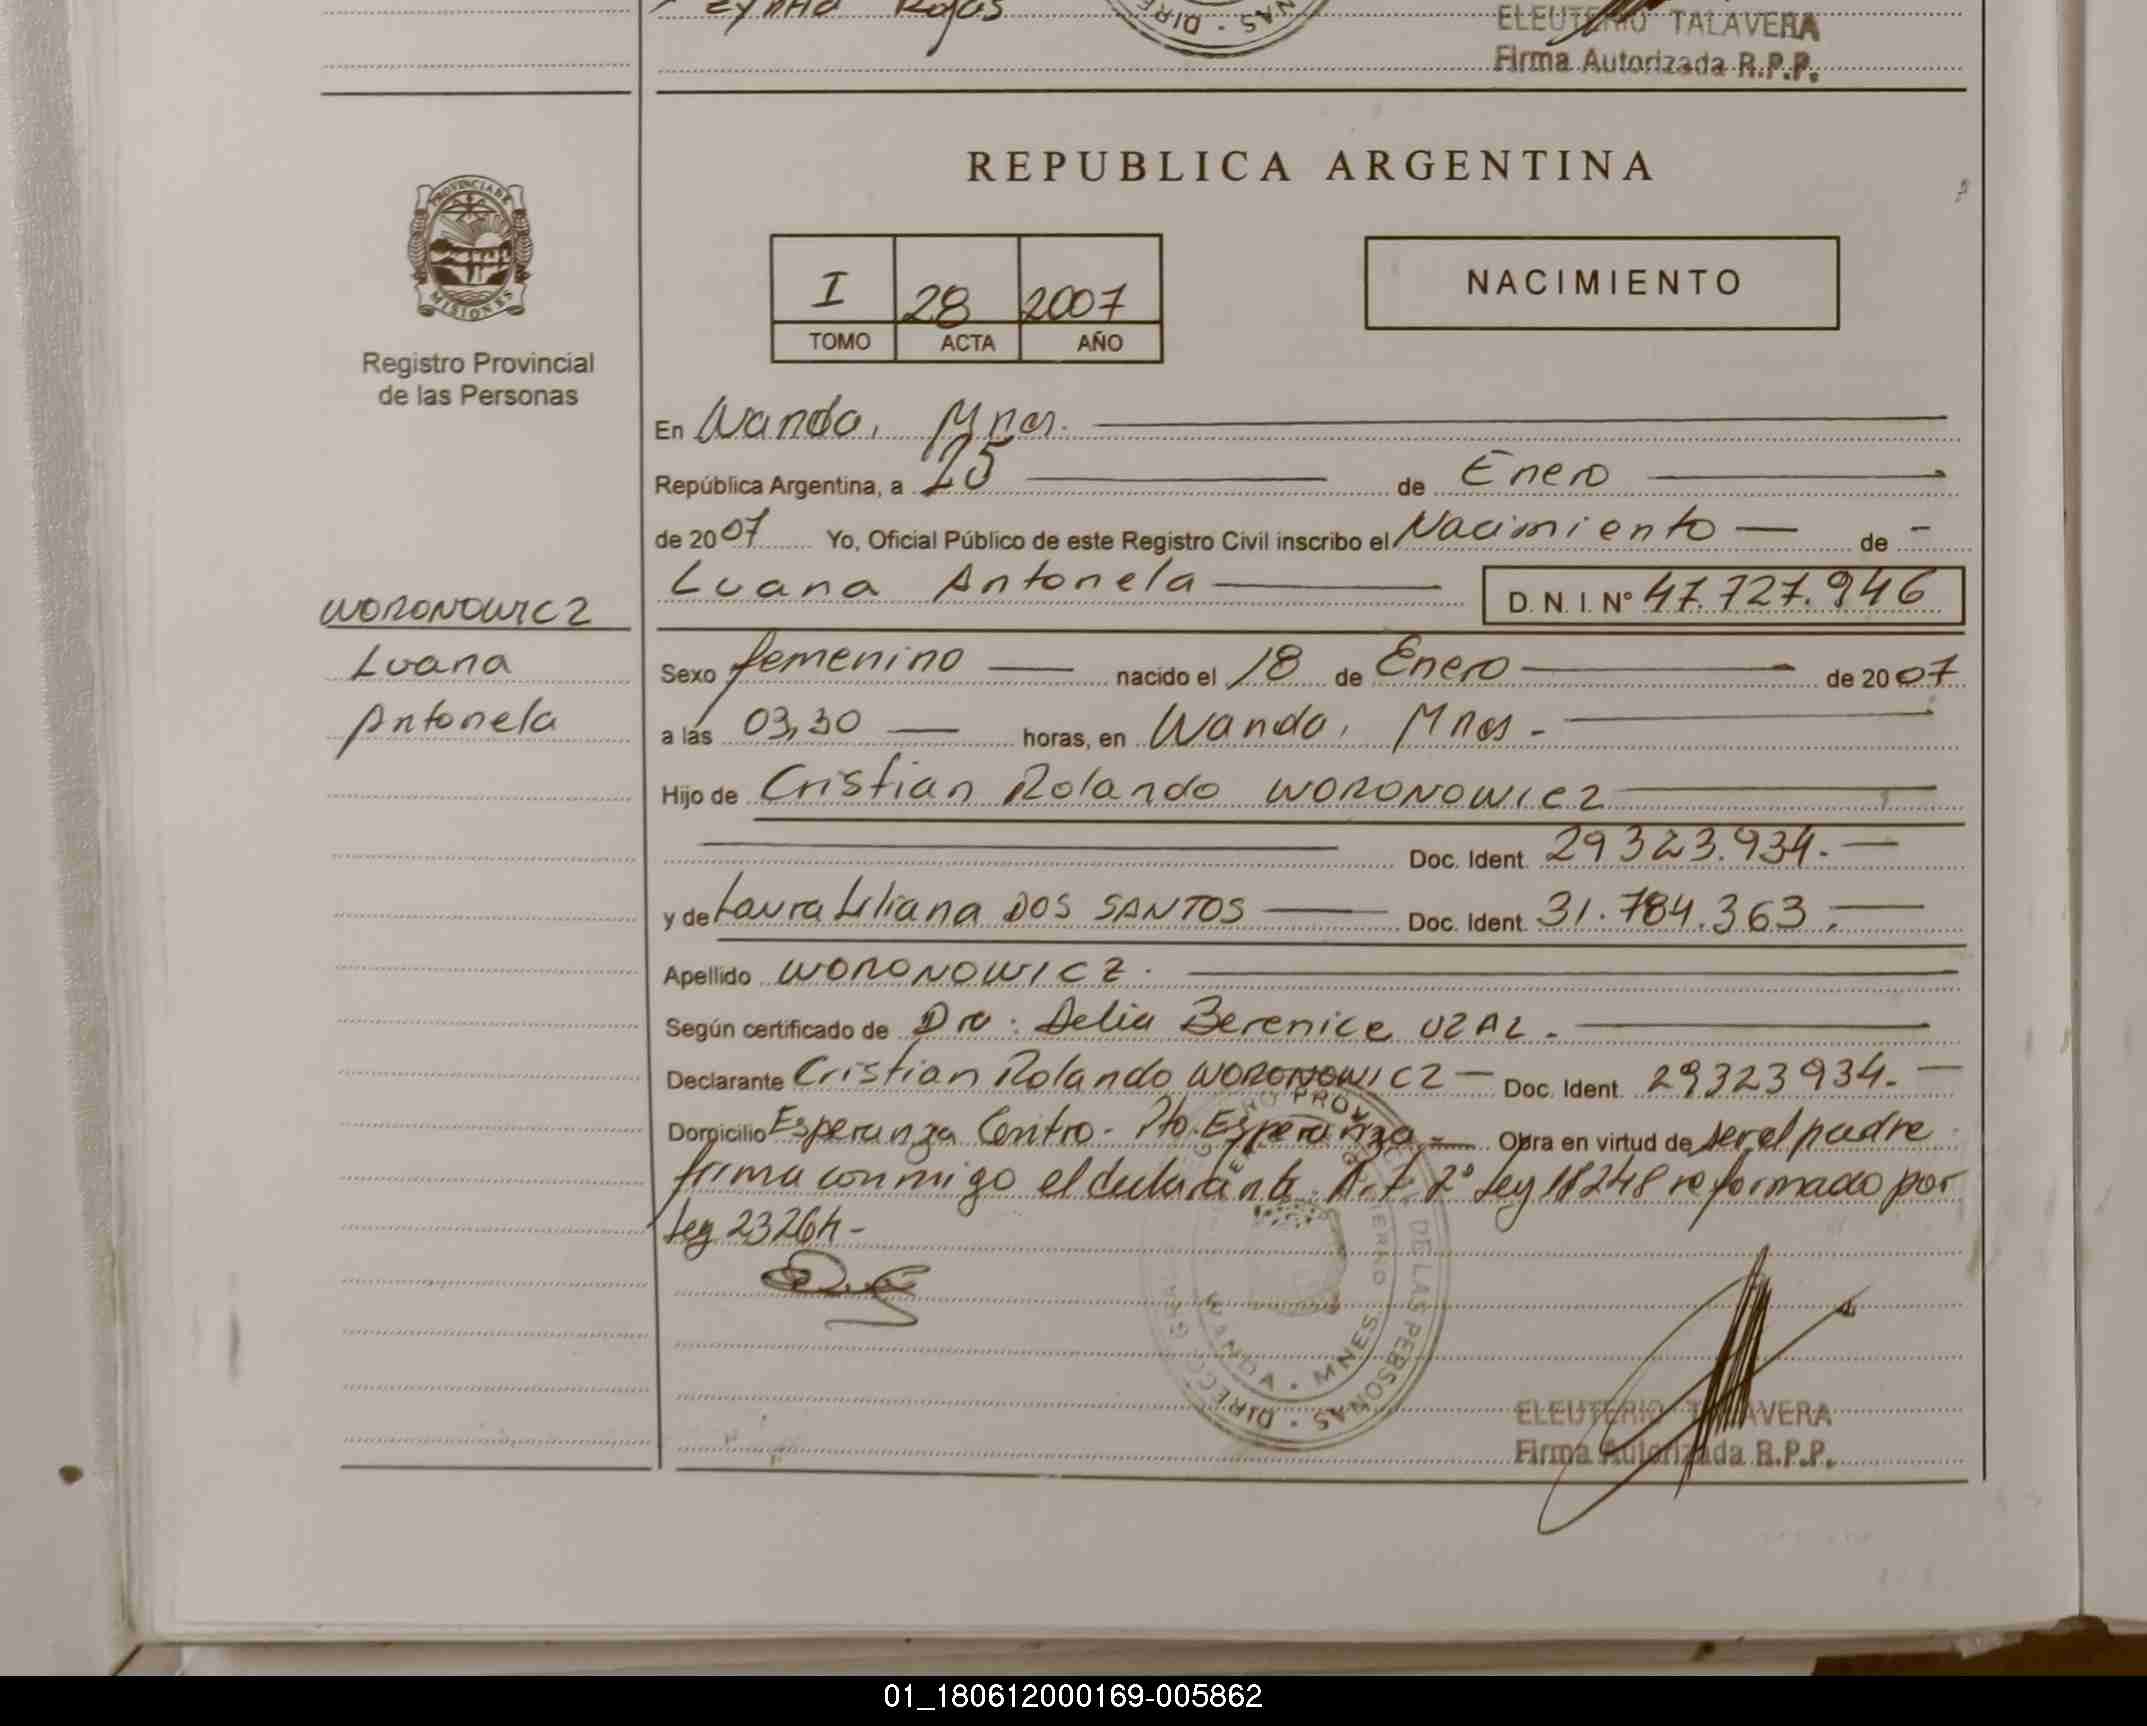 Rojas
DIRE NAS
ELEUTERIO TALAVERA
Firma Autorizada R.P.P.
PROVINCIA DE MISIONES
Registro Provincial
de las Personas
REPUBLICA ARGENTINA
I 28 2007
TOMO ACTA AÑO
NACIMIENTO
En Wanda, Mnes.
República Argentina, a 25 de Enero
de 2007 Yo, Oficial Público de este Registro Civil inscribo el Nacimiento de
Luana Antonela D.N.I. Nº 47.727.946
WORONOWICZ
Luana
Antonela
Sexo femenino nacido el 18 de Enero de 2007
a las 03,30 horas, en Wanda, Mnes -
Hijo de Cristian Rolando WORONOWICZ
Doc. Ident. 29323.934.-
y de Laura Liliana DOS SANTOS Doc. Ident. 31.784.363.-
Apellido WORONOWICZ.
Según certificado de Dra: Delia Berenice UZAL.
Declarante Cristian Rolando WORONOWICZ - Doc. Ident. 29323934.-
Domicilio Esperanza Centro - Pto. Esperanza.- Obra en virtud de ser el padre
firma conmigo el declarante. Art. 2º Ley 18248 reformado por
Ley 23264-
DE LAS PERSONAS · DIRECC GRAL
WANDA · MNES.
ELEUTERIO TALAVERA
Firma Autorizada R.P.P.
01_180612000169-005862